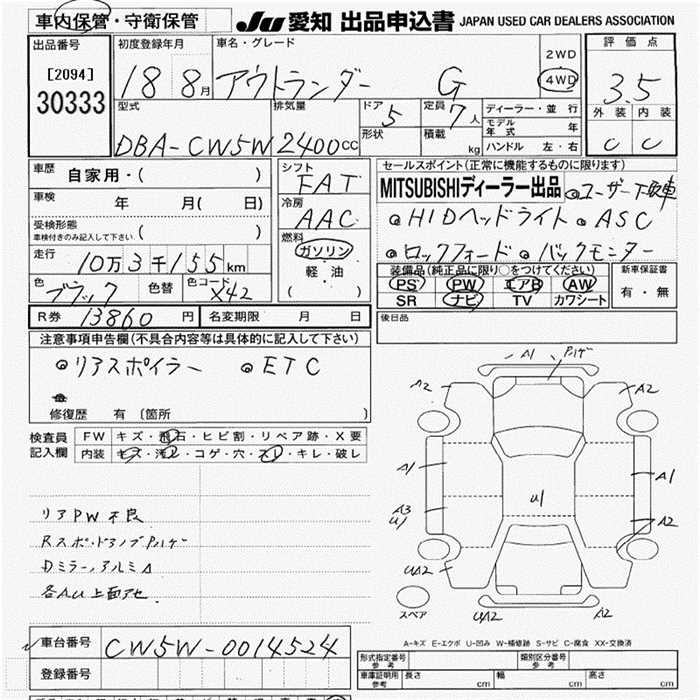 車内保管・守衛保管 JU 愛知 出品申込書 JAPAN USED CAR DEALERS ASSOCIATION
出品番号 初度登録年月 車名・グレード 評価点
[2094] 18 8月 アウトランダー G 2WD 4WD 3.5
30333
型式 排気量 ドア 定員 ディーラー・並行 外装 内装
DBA-CW5W 2400cc 5 7人 モデル年式 年 C C
形状 積載 kg ハンドル 左・右
車歴 自家用・( ) シフト FAT セールスポイント(正常に機能するものに限ります)
MITSUBISHIディーラー出品 ユーザー下取車
車検 年 月( 日) 冷房 AAC HIDヘッドライト ASC
受検形態 車検付きのみ記入して下さい ( ) 燃料 ガソリン ロックフォード バックモニター
走行 10万3千155km 軽油 装備品(純正品に限り○をつけてください) 新車保証書
( ) PS PW エアB AW 有・無
色 ブラック 色替 色コード X42 SR ナビ TV カワシート
R券 13860円 名変期限 月 日 後日品
注意事項申告欄(不具合内容等は具体的に記入して下さい)
リアスポイラー ETC
修復歴 有 〔箇所 〕
検査員 FW キズ・飛石・ヒビ割・リペア跡・X要
記入欄 内装 キズ・汚レ・コゲ・穴・スレ・キレ・破レ
リアPW不良
Dミラー
A1
A2 A2
A1 A1
A3 U1
U1
A2
UA2
UA2 A2
スペア
A-キズ E-エクボ U-凹み W-補修跡 S-サビ C-腐食 XX-交換済
車台番号 CW5W-0014524
登録番号
形式指定番号 参考 類別区分番号 参考
車庫証明用 参考 長さ cm 幅 cm 高さ cm